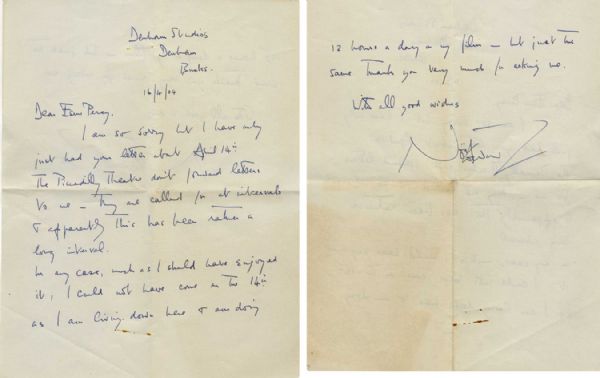 Denham Studios
Denham
Bucks.
16/4/04
Dear
I am so sorry but I have only
just had your letter about April 14th
The Piccadilly Theatre don't forward letters
to me – they are called for at intervals
& apparently this has been rather a
long interval.
In any case, much as I should have enjoyed
it, I could not have come on the 14th
as I am living down here & am doing
12 hours a day on my film – but just the
same thank you very much for asking me.
With all good wishes